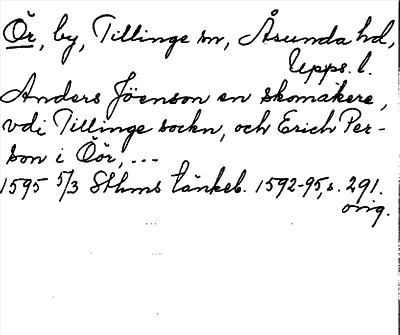 Ör, by, Tillinge sn, Åsunda hd,
Upps. l.
Anders Jöenson en skomakere,
vdi Tillinge sockn, och Erich Per-
son i Öör, ...
1595 5/3 Sthms tänkeb. 1592-95, s. 291.
orig.